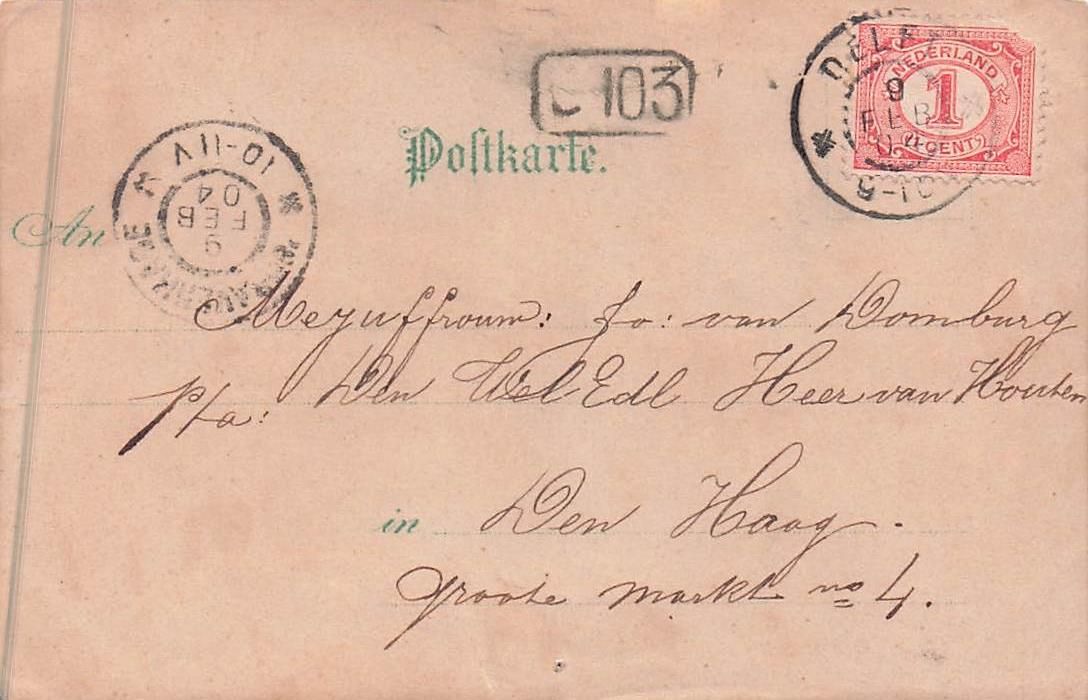 103
DELF
9
FEB
6-10
NEDERLAND
1
(1 CENT)
Postkarte.
10-11V
9
FEB
04
'S GRAVENHAGE
An
Mejuffrouw: Jo: van Domburg
p/a: Den WelEdl Heer van Houten
in Den Haag.
groote markt no 4.